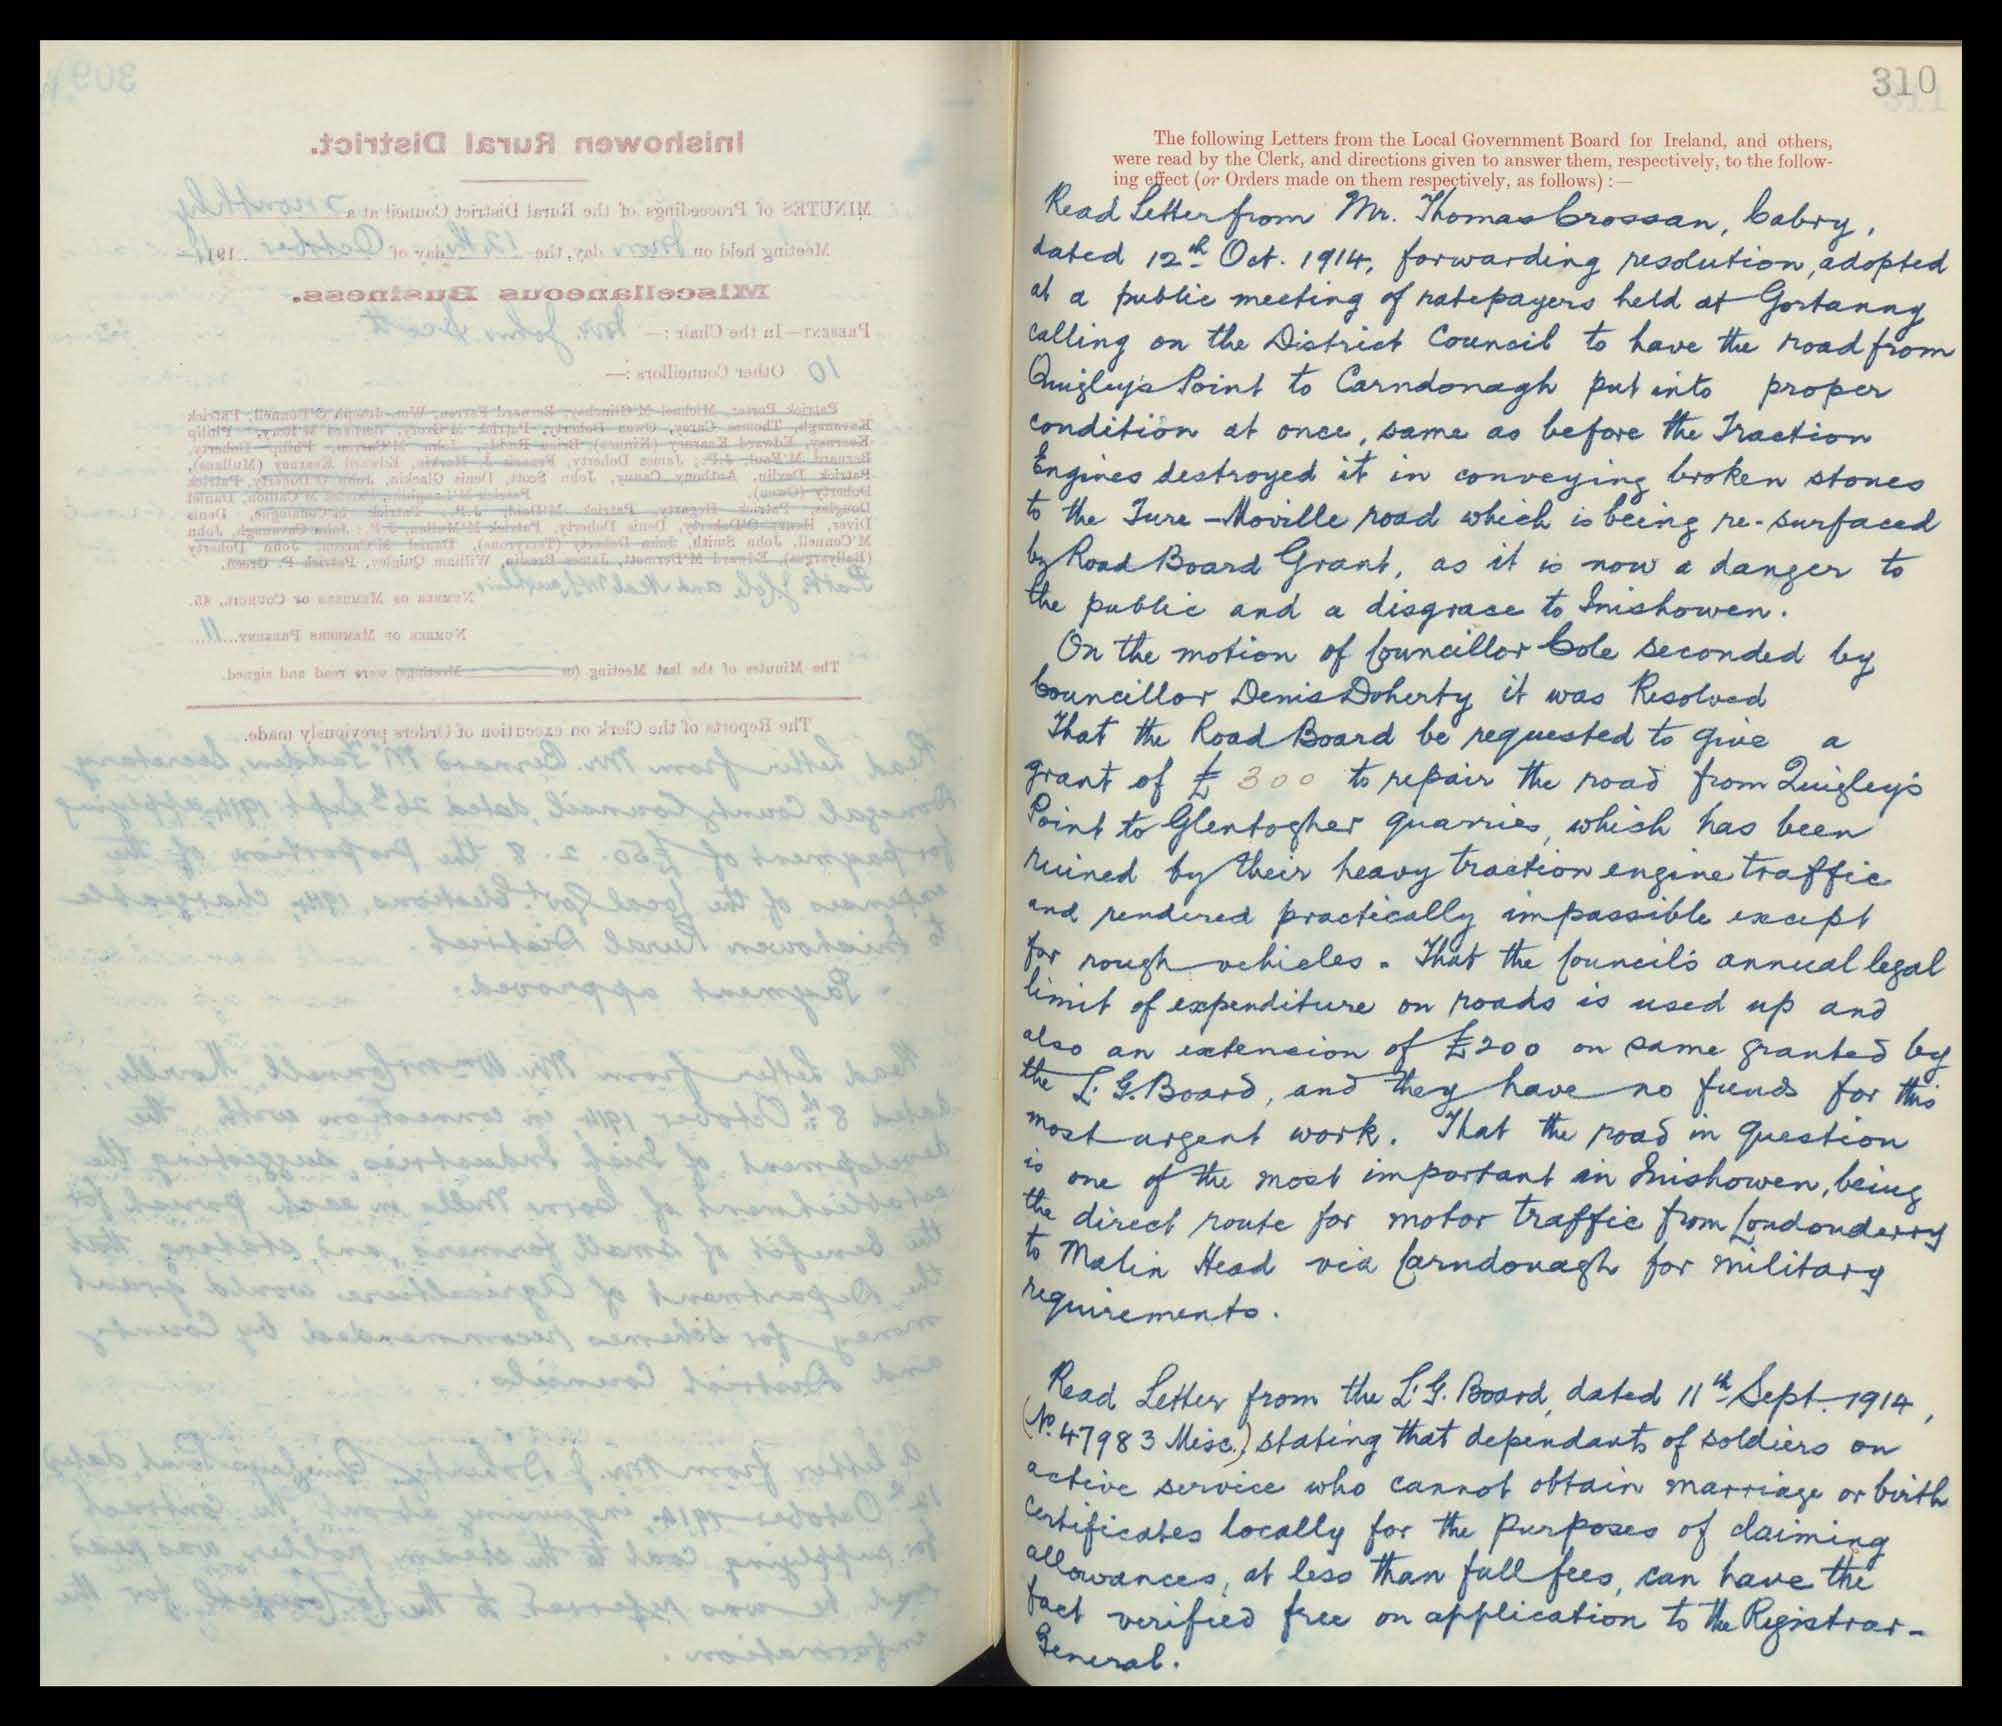 310
The following Letters from the Local Government Board for Ireland, and others,
were read by the Clerk, and directions given to answer them, respectively, to the follow-
ing effect (or Orders made on them respectively, as follows) :—
Read Letter from Mr. Thomas Crossan, Cabry,
dated 12th Oct. 1914, forwarding resolution, adopted
at a public meeting of ratepayers held at Gortanny
calling on the District Council to have the road from
Quigley's Point to Carndonagh put into proper
condition at once, same as before the Traction
Engines destroyed it in conveying broken stones
to the Ture - Moville road which is being re-surfaced
by Road Board Grant, as it is now a danger to
the public and a disgrace to Inishowen.
On the motion of Councillor Cole seconded by
Councillor Denis Doherty it was Resolved
That the Road Board be requested to give a
grant of £300 to repair the road from Quigley's
Point to Glentogher quarries, which has been
ruined by their heavy traction engine traffic
and rendered practically impassible except
for rough vehicles. That the Council's annual legal
limit of expenditure on roads is used up and
also an extension of £200 on same granted by
the L. G. Board, and they have no funds for this
most urgent work. That the road in question
is one of the most important in Inishowen, being
the direct route for motor traffic from Londonderry
to Malin Head via Carndonagh for military
requirements.
Read Letter from the L. G. Board, dated 11th Sept. 1914,
(No. 47983 Misc.) stating that dependants of soldiers on
active service who cannot obtain marriage or birth
certificates locally for the purposes of claiming
allowances, at less than full fees, can have the
fact verified free on application to the Registrar-
General.